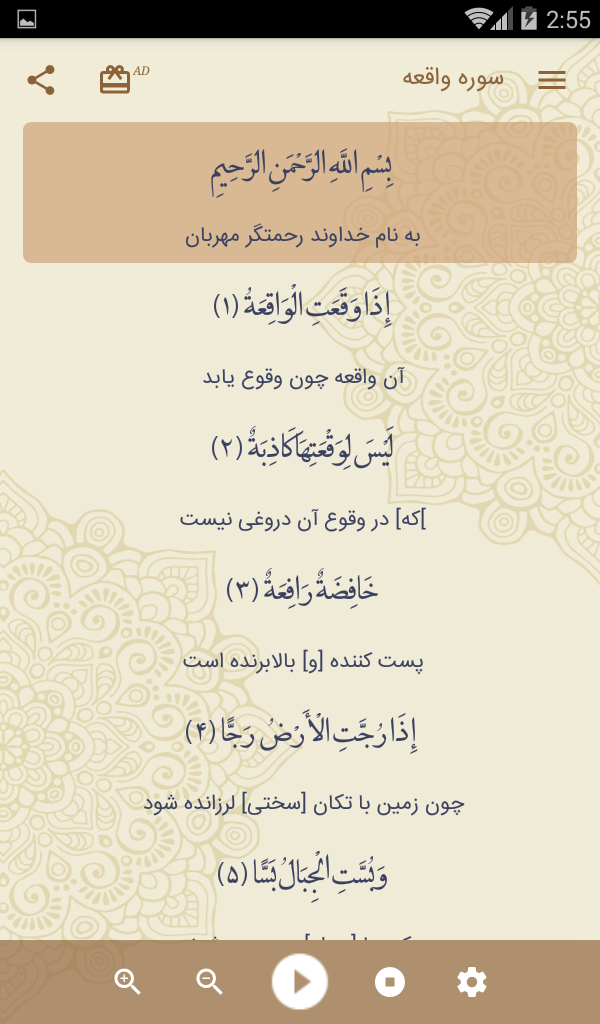 2:55
سوره واقعه
AD
بِسْمِ اللَّهِ الرَّحْمَنِ الرَّحِيمِ
به نام خداوند رحمتگر مهربان
إِذَا وَقَعَتِ الْوَاقِعَةُ (۱)
آن واقعه چون وقوع یابد
لَيْسَ لِوَقْعَتِهَا كَاذِبَةٌ (۲)
[که] در وقوع آن دروغی نیست
خَافِضَةٌ رَافِعَةٌ (۳)
پست کننده [و] بالابرنده است
إِذَا رُجَّتِ الْأَرْضُ رَجًّا (۴)
چون زمین با تکان [سختی] لرزانده شود
وَبُسَّتِ الْجِبَالُ بَسًّا (۵)